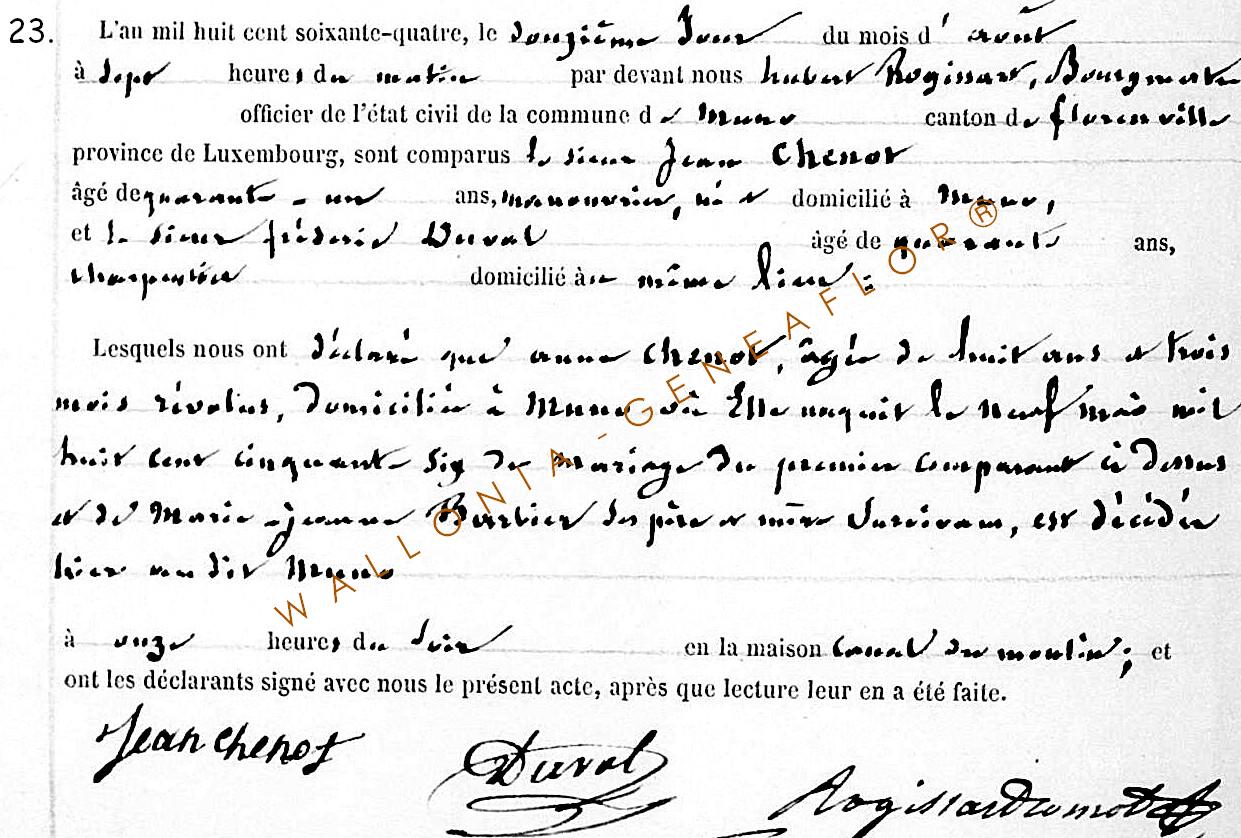 23. L'an mil huit cent soixante-quatre, le douzième Jour du mois d'août
à Sept heures du matin par devant nous hubert Rogissart, Bourgmestre
officier de l'état civil de la commune de Muno canton de florenville
province de Luxembourg, sont comparus le sieur Jean Chenot
âgé de quarante-un ans, manouvrier, né et domicilié à Muno,
et le sieur fréderic Duval âgé de quarante ans,
charpentier domicilié au même lieu ;
Lesquels nous ont déclaré que anne Chenot, âgée de huit ans et trois
mois révolus, domiciliée à Muno où Elle naquit le neuf mai mil
huit cent cinquante six du mariage du premier comparant ci dessus
et de Marie-jeanne Barbier ses père et mère Survivans, est décédée
hier au dit Muno
à onze heures du Soir en la maison canal du moulin ; et
ont les déclarants signé avec nous le présent acte, après que lecture leur en a été faite.
Jean chenot Duval Rogissart
WALLONIA-GENEAFLOR®